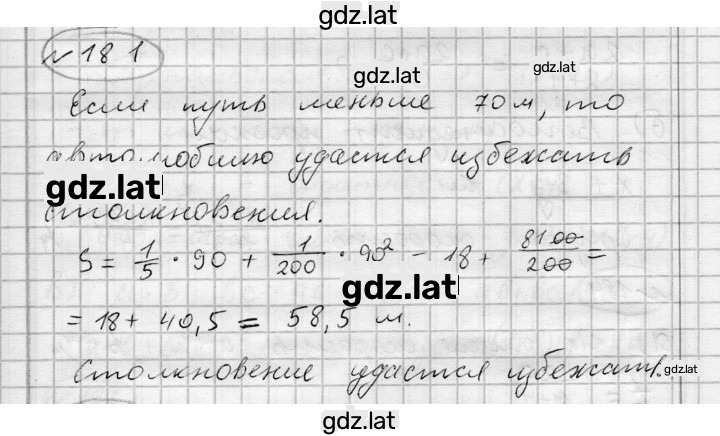 gdz.lat
№ 181
gdz.lat
gdz.lat
Если путь меньше 70 м, то
автомобилю удастся избежать
gdz.lat
столкновения.
S = 1/5 · 90 + 1/200 · 90² = 18 + 8100/200 =
gdz.lat
= 18 + 40,5 = 58,5 м.
Столкновение удастся избежать.
gdz.lat
gdz.lat